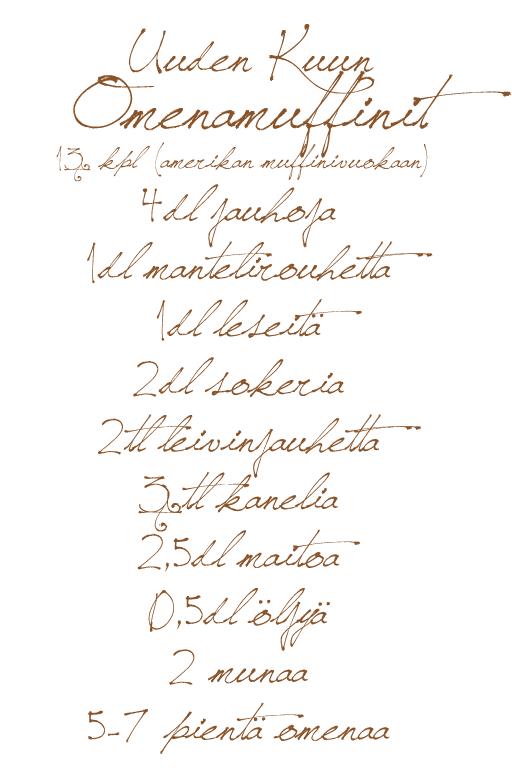 Uuden Kuun
Omenamuffinit
13 kpl (amerikan muffinivuokaan)
4 dl jauhoja
1 dl mantelirouhetta
1 dl leseitä
2 dl sokeria
2 tl leivinjauhetta
3 tl kanelia
2,5 dl maitoa
0,5 dl öljyä
2 munaa
5-7 pientä omenaa